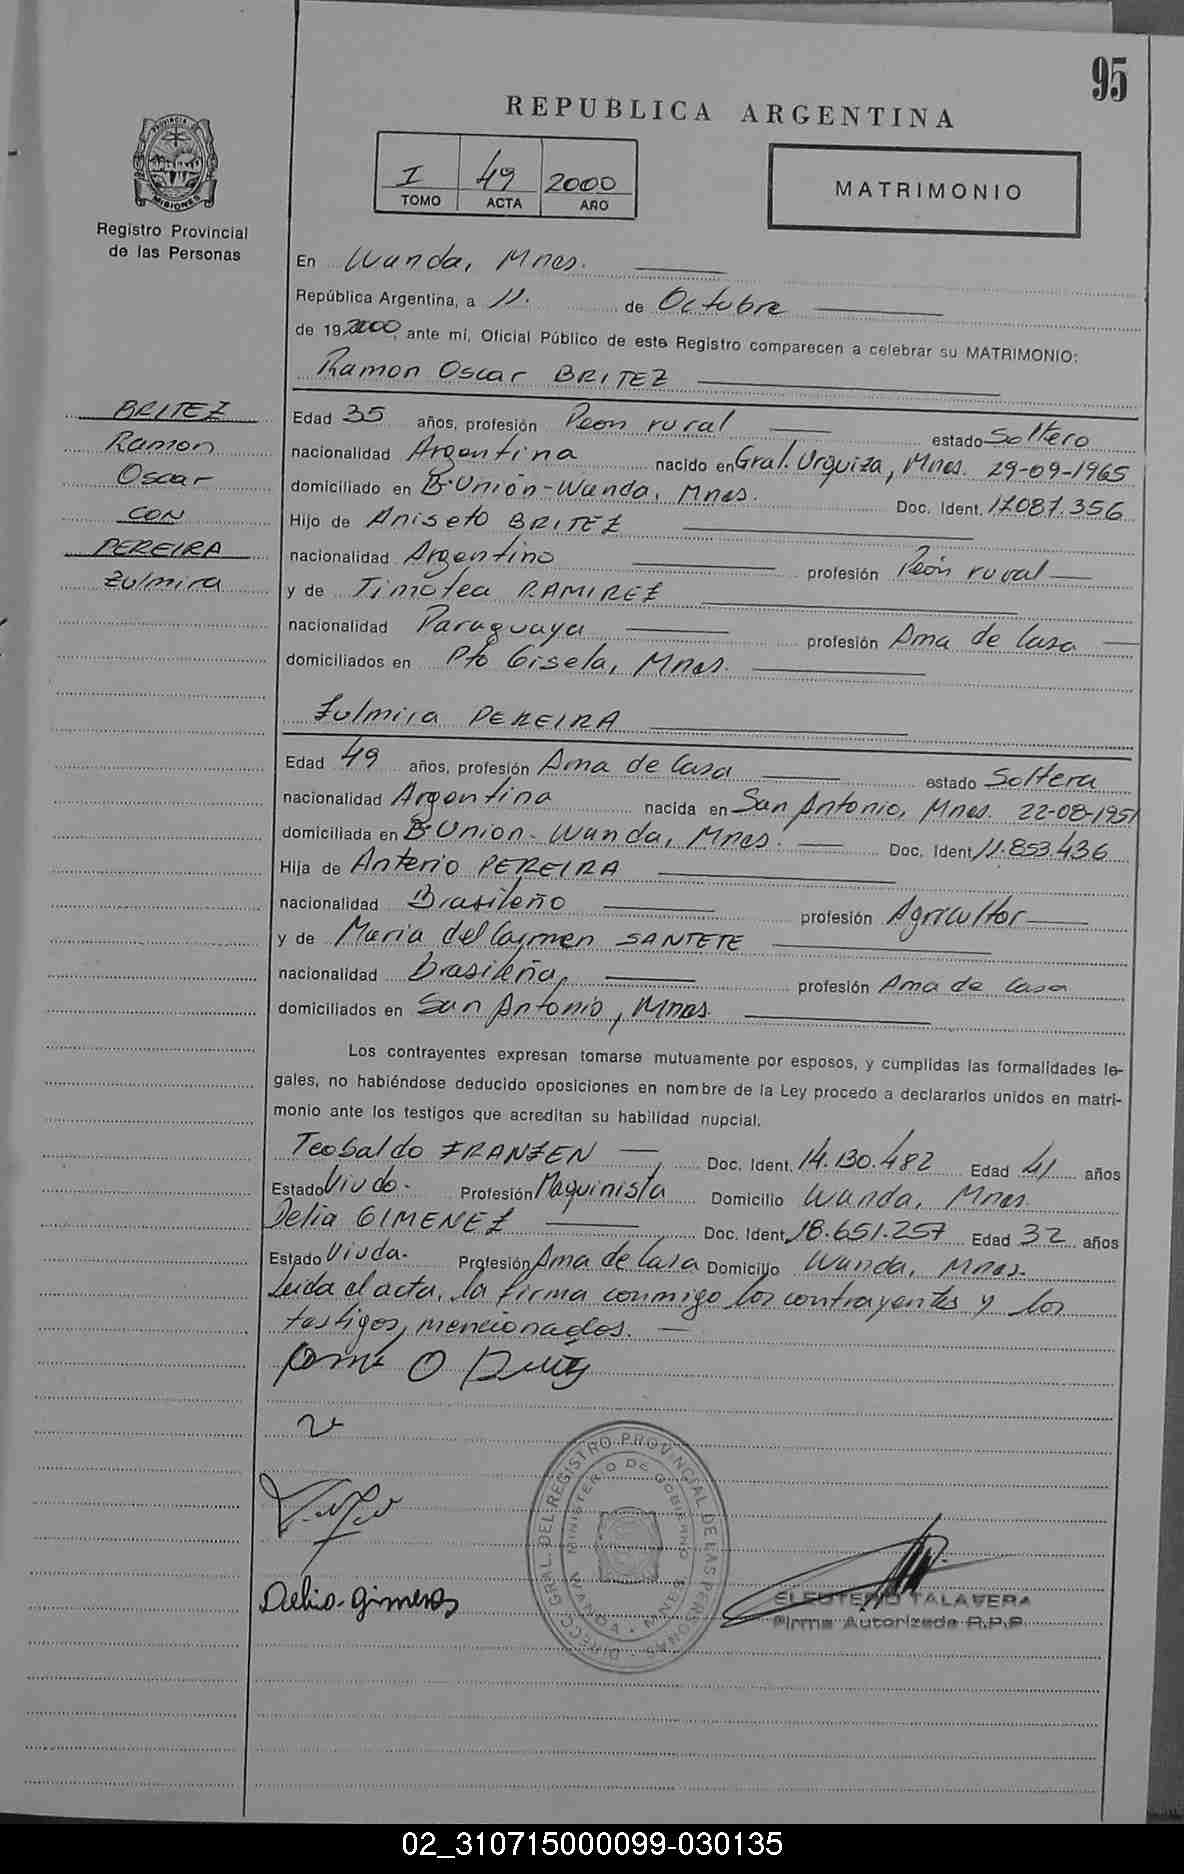 95
REPUBLICA ARGENTINA
I 49 2000
TOMO ACTA AÑO
MATRIMONIO
PROVINCIA DE
MISIONES
Registro Provincial
de las Personas
En Wanda, Mnes.
República Argentina, a 11. de Octubre
de 19 2000, ante mí, Oficial Público de este Registro comparecen a celebrar su MATRIMONIO:
Ramon Oscar BRITEZ
BRITEZ
Ramon
Oscar
CON
PEREIRA
Zulmira
Edad 35 años, profesión Peon rural estado Soltero
nacionalidad Argentina nacido en Gral. Urquiza, Mnes. 29-09-1965
domiciliado en Bº Unión-Wanda, Mnes. Doc. Ident. 17.087.356
Hijo de Aniseto BRITEZ
nacionalidad Argentino profesión Peón rural
y de Timotea RAMIREZ
nacionalidad Paraguaya profesión Ama de Casa
domiciliados en Pto Gisela, Mnes.
Zulmira PEREIRA
Edad 49 años, profesión Ama de Casa estado Soltera
nacionalidad Argentina nacida en San Antonio, Mnes. 22-08-1951
domiciliada en Bº Union-Wanda, Mnes. Doc. Ident. 11.853.436
Hija de Anterio PEREIRA
nacionalidad Brasileño profesión Agricultor
y de Maria del Carmen SANTETE
nacionalidad Brasileña, profesión Ama de Casa
domiciliados en San Antonio, Mnes.
Los contrayentes expresan tomarse mutuamente por esposos, y cumplidas las formalidades le-
gales, no habiéndose deducido oposiciones en nombre de la Ley procedo a declararlos unidos en matri-
monio ante los testigos que acreditan su habilidad nupcial.
Teobaldo FRANZEN Doc. Ident. 14.130.482 Edad 41 años
Estado Viudo. Profesión Maquinista Domicilio Wanda, Mnes.
Delia GIMENEZ Doc. Ident. 18.651.257 Edad 32 años
Estado Viuda. Profesión Ama de Casa Domicilio Wanda, Mnes.
Leida el acta, la firma conmigo los contrayentes y los
testigos, mencionados.
DIRECC. GRAL. DEL REGISTRO PROVINCIAL DE LAS PERSONAS
MINISTERIO DE GOBIERNO
WANDA - MNES
Delia Gimenes
ELEUTERIO TALAVERA
Firma Autorizada R.P.P.
02_310715000099-030135